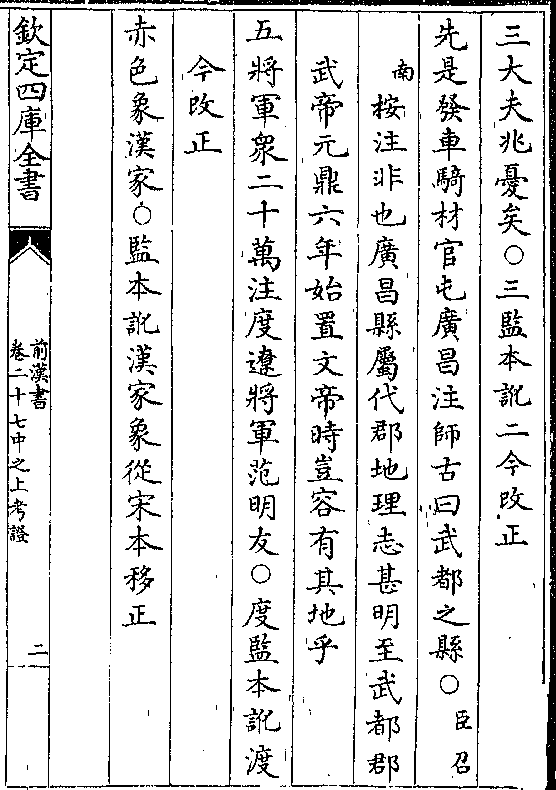 三大夫兆憂矣○三監本訛二今改正
先是發車騎材官屯廣昌注師古曰武都之縣○臣召
南按注非也廣昌縣屬代郡地理志甚明至武都郡
武帝元鼎六年始置文帝時豈容有其地乎
五將軍衆二十萬注度遼將軍范明友○度監本訛渡
今改正
赤色象漢家○監本訛漢家象從宋本移正
欽定四庫全書
前漢書
卷二十七中之上考證
二